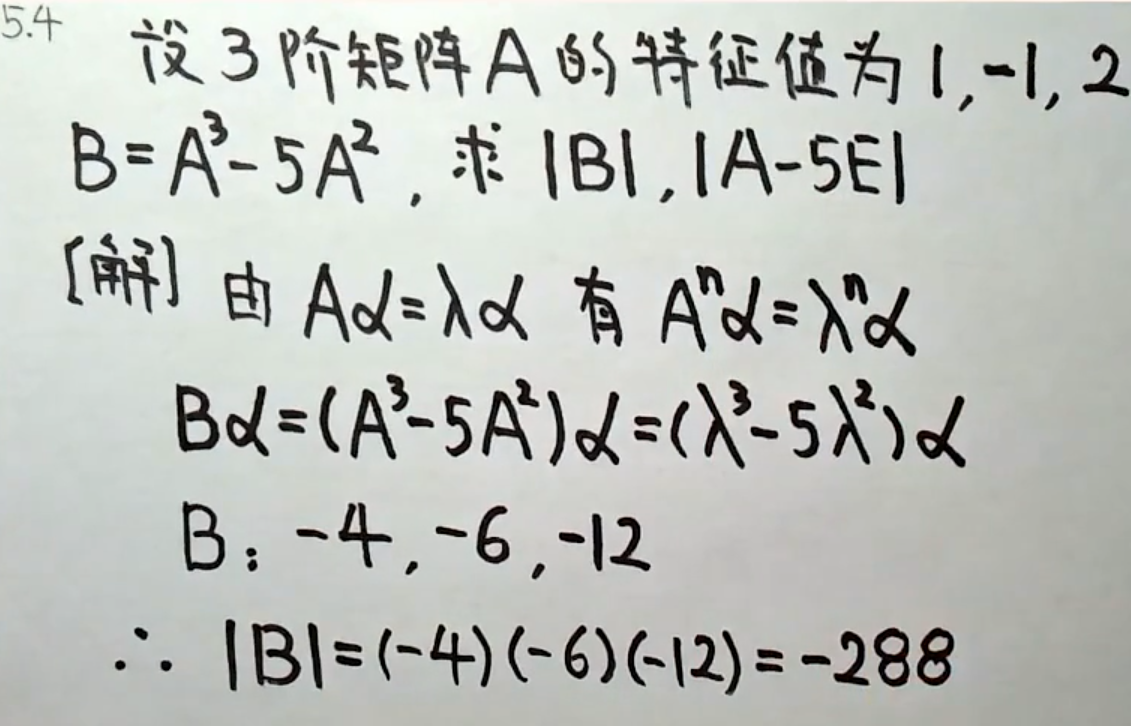 5.4
设3阶矩阵A的特征值为1,-1,2
B=A³-5A², 求|B|,|A-5E|
[解] 由 Aα=λα 有 Aⁿα=λⁿα
Bα=(A³-5A²)α=(λ³-5λ²)α
B: -4, -6, -12
∴ |B|=(-4)(-6)(-12)=-288